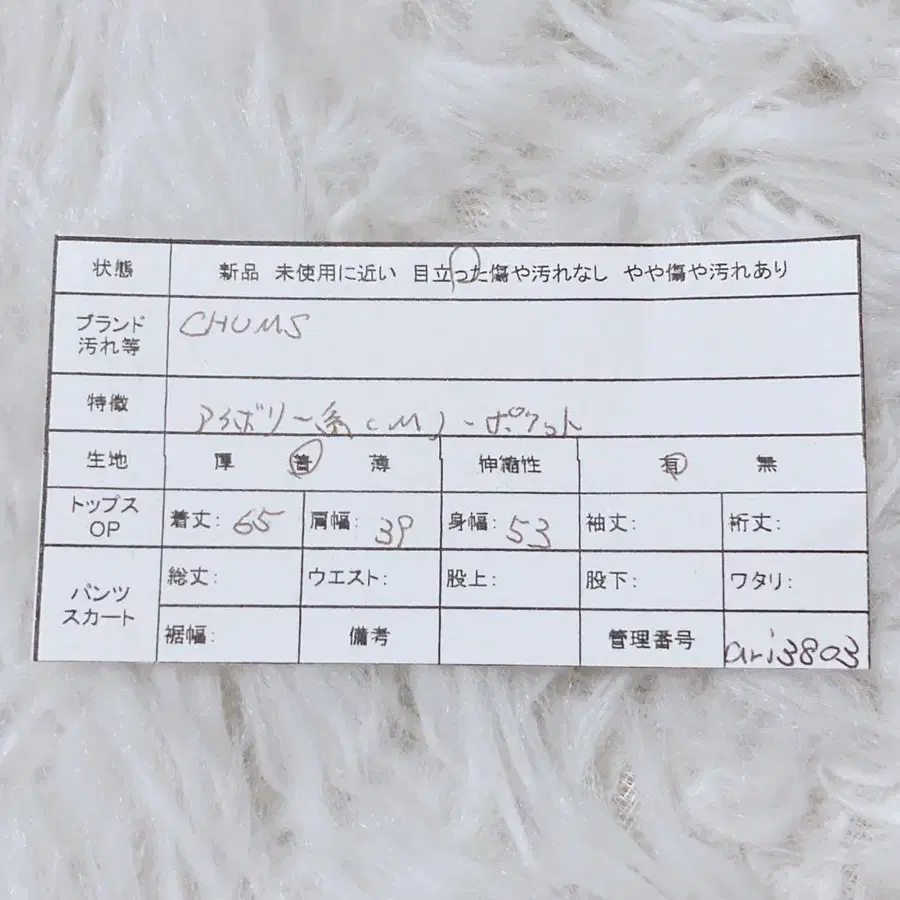 状態 新品 未使用に近い 目立った傷や汚れなし やや傷や汚れあり
ブランド
汚れ等 CHUMS
特徴 アイボリー系(M)、ポケット
生地 厚 普 薄 伸縮性 有 無
トップス
OP 着丈: 65 肩幅: 39 身幅: 53 袖丈: 裄丈:
パンツ
スカート 総丈: ウエスト: 股上: 股下: ワタリ:
裾幅: 備考 管理番号 ari3803